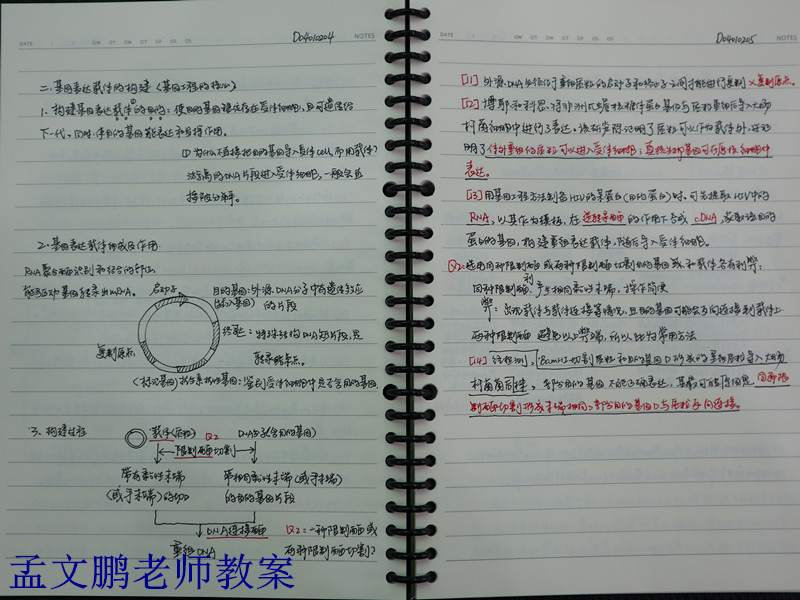 DATE
D04010204
NOTES
二.基因表达载体的构建(基因工程的核心)
1.构建基因表达载体的目的:使目的基因稳定存在受体细胞,且可遗传给
下一代,同时,使目的基因能表达和发挥作用。
①为什么不直接把目的基因导入受体cell,而用载体?
游离的DNA片段进入受体细胞,一般会直
接被分解。
2.基因表达载体组成及作用
RNA聚合酶识别和结合的部位
驱动基因转录出mRNA。
启动子
目的基因:外源DNA分子中有遗传效应
(插入基因)的片段
终止子:特殊结构DNA短片段,是
转录终点。
复制原点
(标记基因)抗生素抗性基因:鉴别受体细胞中是否含目的基因
3.构建过程
载体(质粒) Q2 DNA分子(含目的基因)
限制酶切割
带有黏性末端 带相同黏性末端(或平末端)
(或平末端)的切口 的目的基因片段
DNA连接酶 Q2:一种限制酶或
重组DNA 两种限制酶切割?
孟文鹏老师教案
D04010205
NOTES
[11]外源DNA必须位于重组质粒的启动子和终止子之间才能进行复制×复制原点。
[12]博耶和科恩,将非洲爪蟾核糖体蛋白基因与质粒重组后导入大肠
杆菌细胞中进行了表达,该研究证明了质粒可以作为载体外,还证
明了体外重组的质粒可以进入受体细胞;真核生物基因可在原核细胞中
表达。
[13]用基因工程方法制备HIV的某蛋白(目的蛋白)时,可先提取HIV中的
RNA,以其作为模板,在逆转录酶的作用下合成cDNA,获取该目的
蛋白的基因,构建重组表达载体,随后导入受体细胞。
Q2:选用同种限制酶或两种限制酶切割目的基因或和载体各有利弊:
同种限制酶,利:产生相同黏性末端,操作简便
弊:出现载体与载体连接等情况,且目的基因可能会反向连接到载体上
两种限制酶 避免以上弊端,所以此为常用方法
[14]经检测,BamHI切割质粒和目的基因D形成的重组质粒导入大肠
杆菌菌同样,部分目的基因不能正确表达,其最可能原因是同种限
制酶切割形成末端相同,部分目的基因D与质粒反向连接。